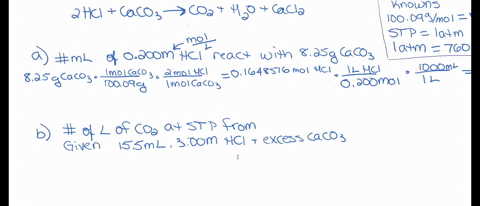 2HCl + CaCO₃ → CO₂ + H₂O + CaCl₂
Knowns
100.09g/mol =
STP = 1atm
1atm = 760
a) # mL of 0.200M HCl react with 8.25g CaCO₃
mol/L
8.25g CaCO₃ · 1mol CaCO₃/100.09g · 2mol HCl/1mol CaCO₃ = 0.1648516 mol HCl · 1L HCl/0.200mol · 1000mL/1L =
b) # of L of CO₂ at STP from
Given 155mL, 3.00M HCl + excess CaCO₃